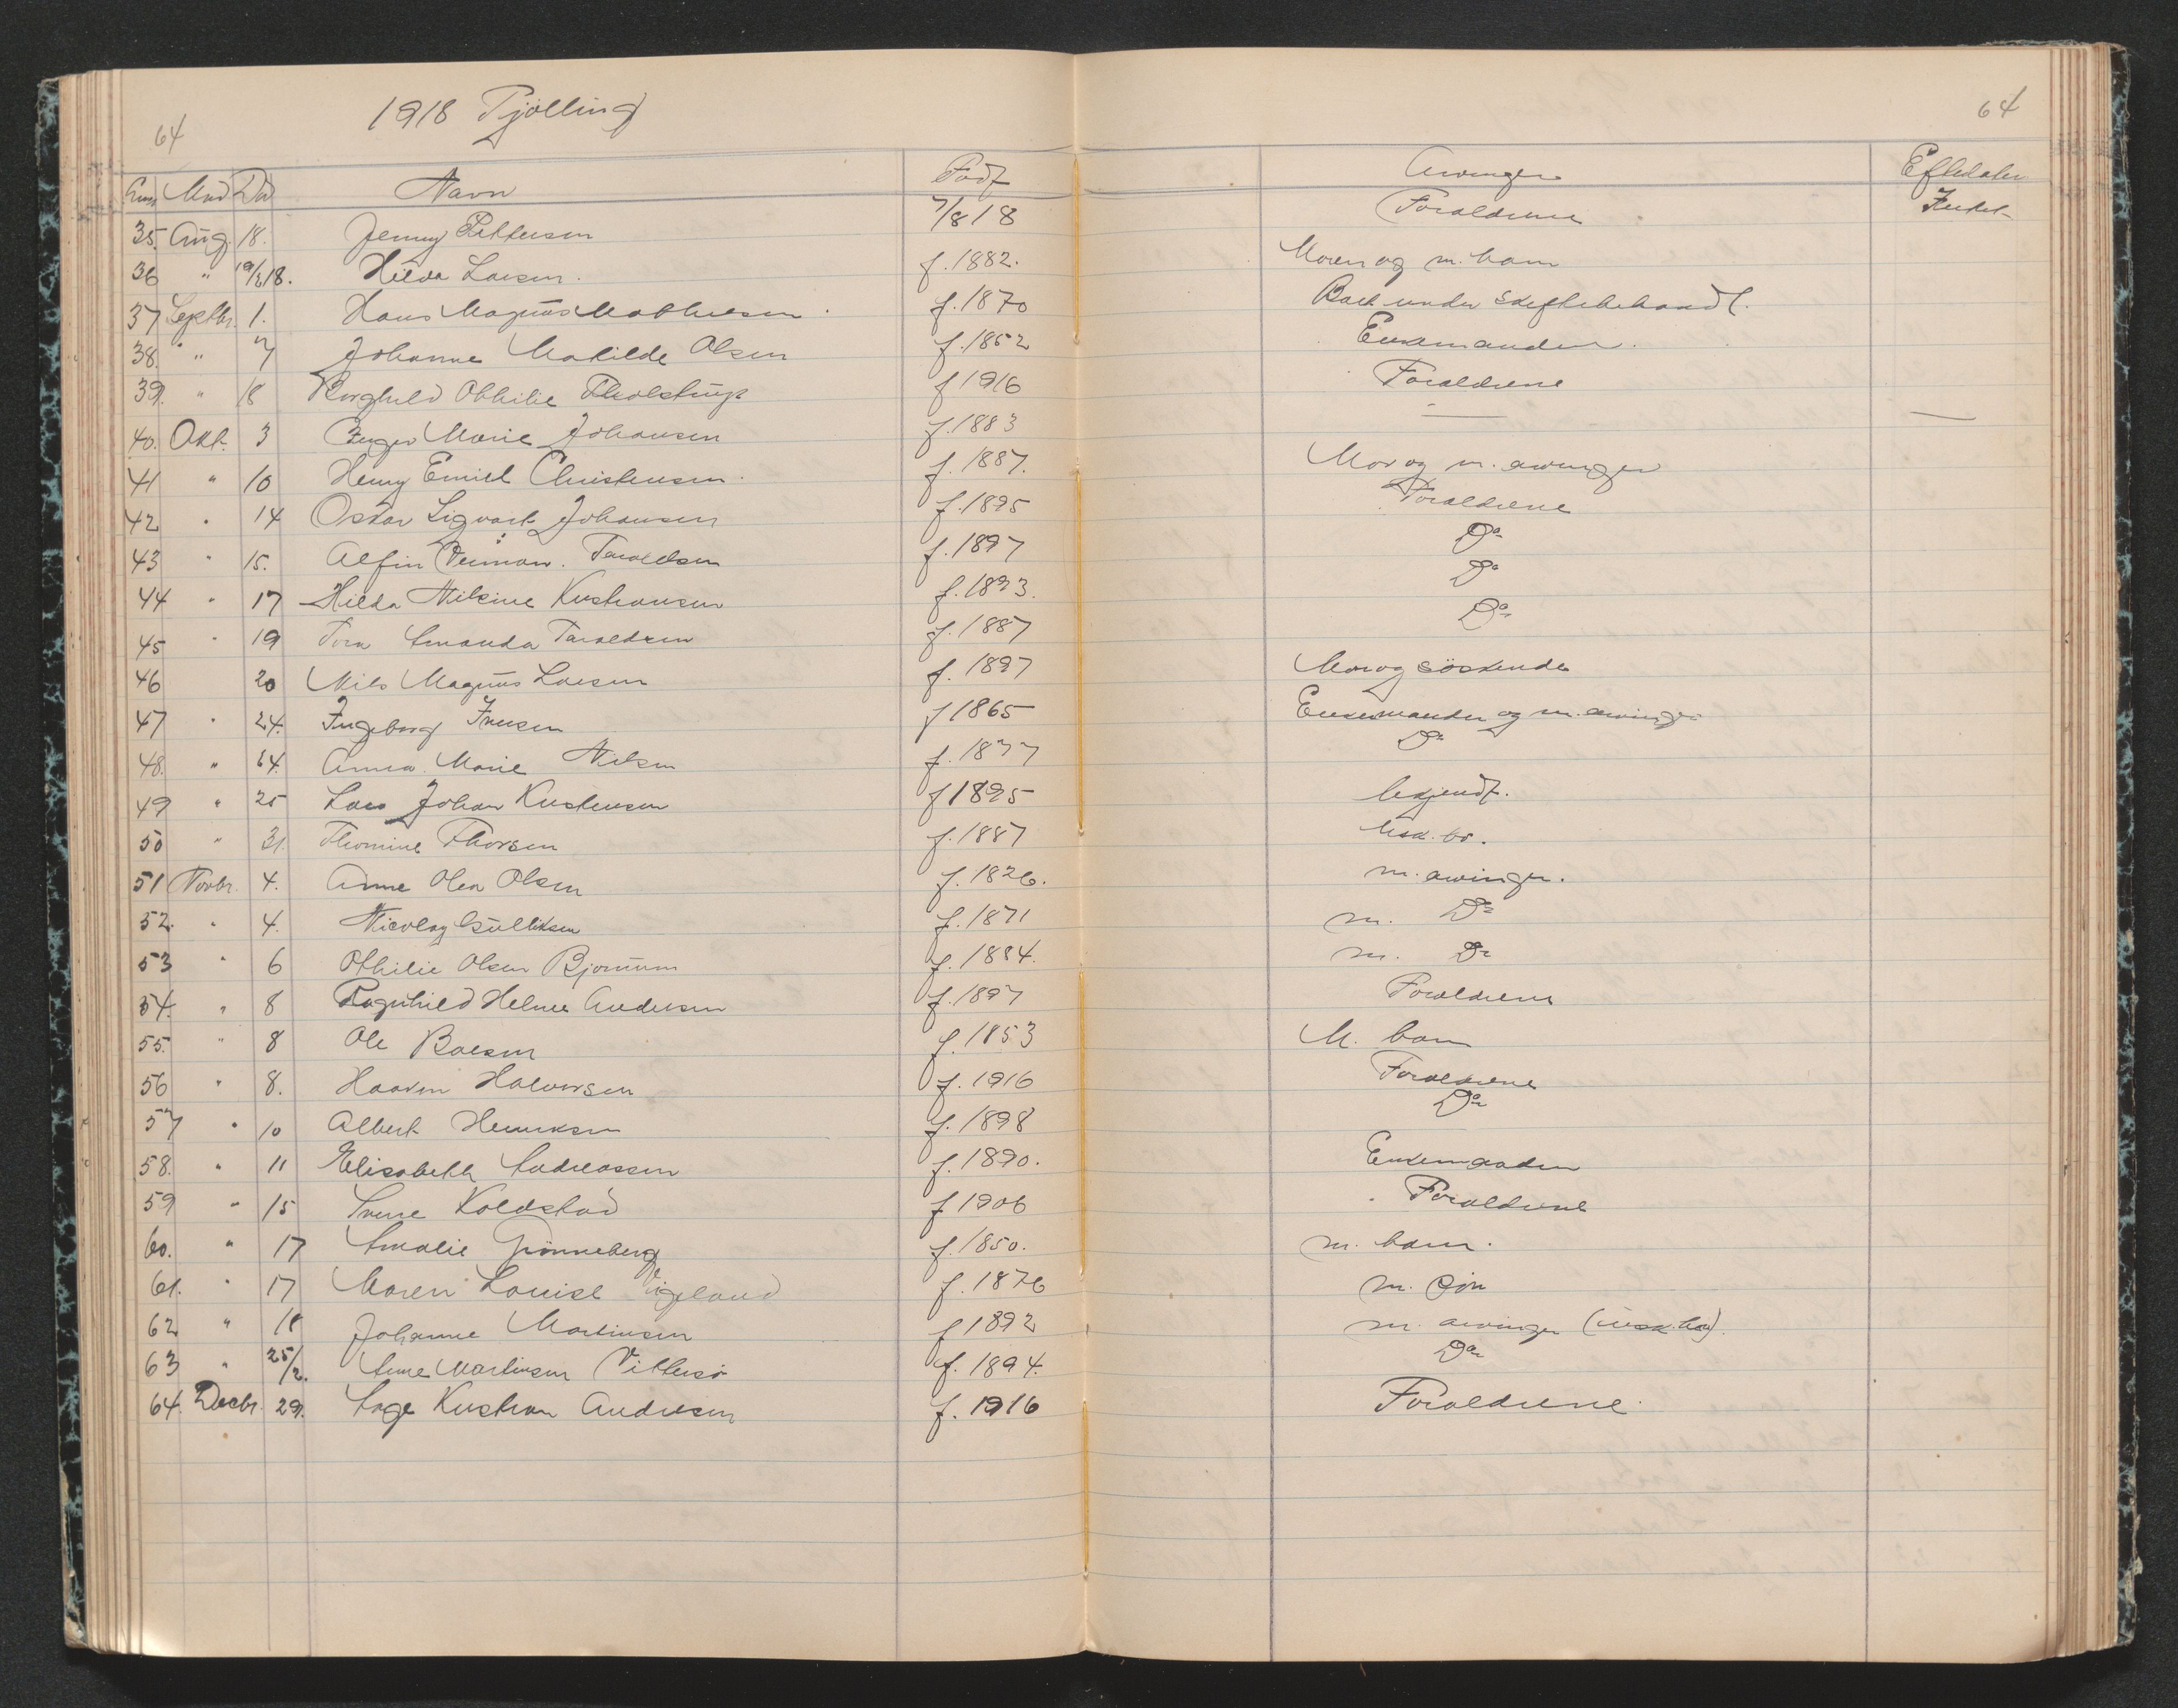 64 1918 Tjølling 64
Mnd Da Navn Født Arvinger Efteladte
35. Aug. 18. Jenny Pettersen 7/818 Forældrene Intet
36 " 19/218. Hilda Larsen. f. 1882. Moren og m. barn
37 Septbr. 1. Hans Magnus Mathisen. f. 1870 Boet under skiftebehandl.
38. " 7 Johanne Matilde Olsen f. 1852 Enkemanden.
39. " 18 Borghild Othilie Tholstrup f 1916 Forældrene
40. Okt. 3 Inger Marie Johansen f. 1883 — —
41 " 10 Henry Emiel Christensen. f. 1887. Mor og m. arvinger
42 " 14 Oskar Sigvart Johansen f. 1895 Forældrene
43 " 15. Alfin Taraldsen f. 1897 Do
44 " 17 Hilda Nilsine Kristiansen f. 1893. Do
45 " 19 Tora Amanda Taraldsen f. 1887 Do
46 20 Nils Magnus Larsen f. 1897 Mor og söskende
47 " 24. Ingeborg Iversen f 1865 Enkemanden og m. arvinger
48. " 24. Anna Marie Nilsen f. 1877 Do
49 " 25 Lars Johan Kristensen f 1895 bekjendt.
50 " 31. Thomine Thorsen f. 1887 Usk. bo.
51 Novbr. 4. Anne Olea Olsen f. 1826. m. arvinger.
52. " 4. Nicolay Gulliksen f. 1871 m. Do
53 " 6 Othilie Olsen Bjønnum f. 1884. m. Do
54. " 8 Ragnhild Helene Andersen f. 1897 Forældrene
55. " 8 Ole Boesen f. 1853 M. barn
56 " 8. Haakon Halvorsen f. 1916 Forældrene
57 " 10 Albert Henriksen f. 1898 Do
58. " 11 Elisabeth Andreassen f. 1890. Enkemanden
59 " 15 Sverre Koldstad f 1906 Forældrene
60. " 17 Amalie Grönneberg f. 1850. m. barn.
61. " 17 Maren Louise Vigeland f. 1876 m. Søn
62 " 18 Johanne Martinsen f 1892 m. arvinger (usk. bo).
63 " 25/2. Anne Martinsen Vittersö f. 1894. Do
64. Decbr. 29. Aage Kristian Andresen f. 1916 Forældrene.